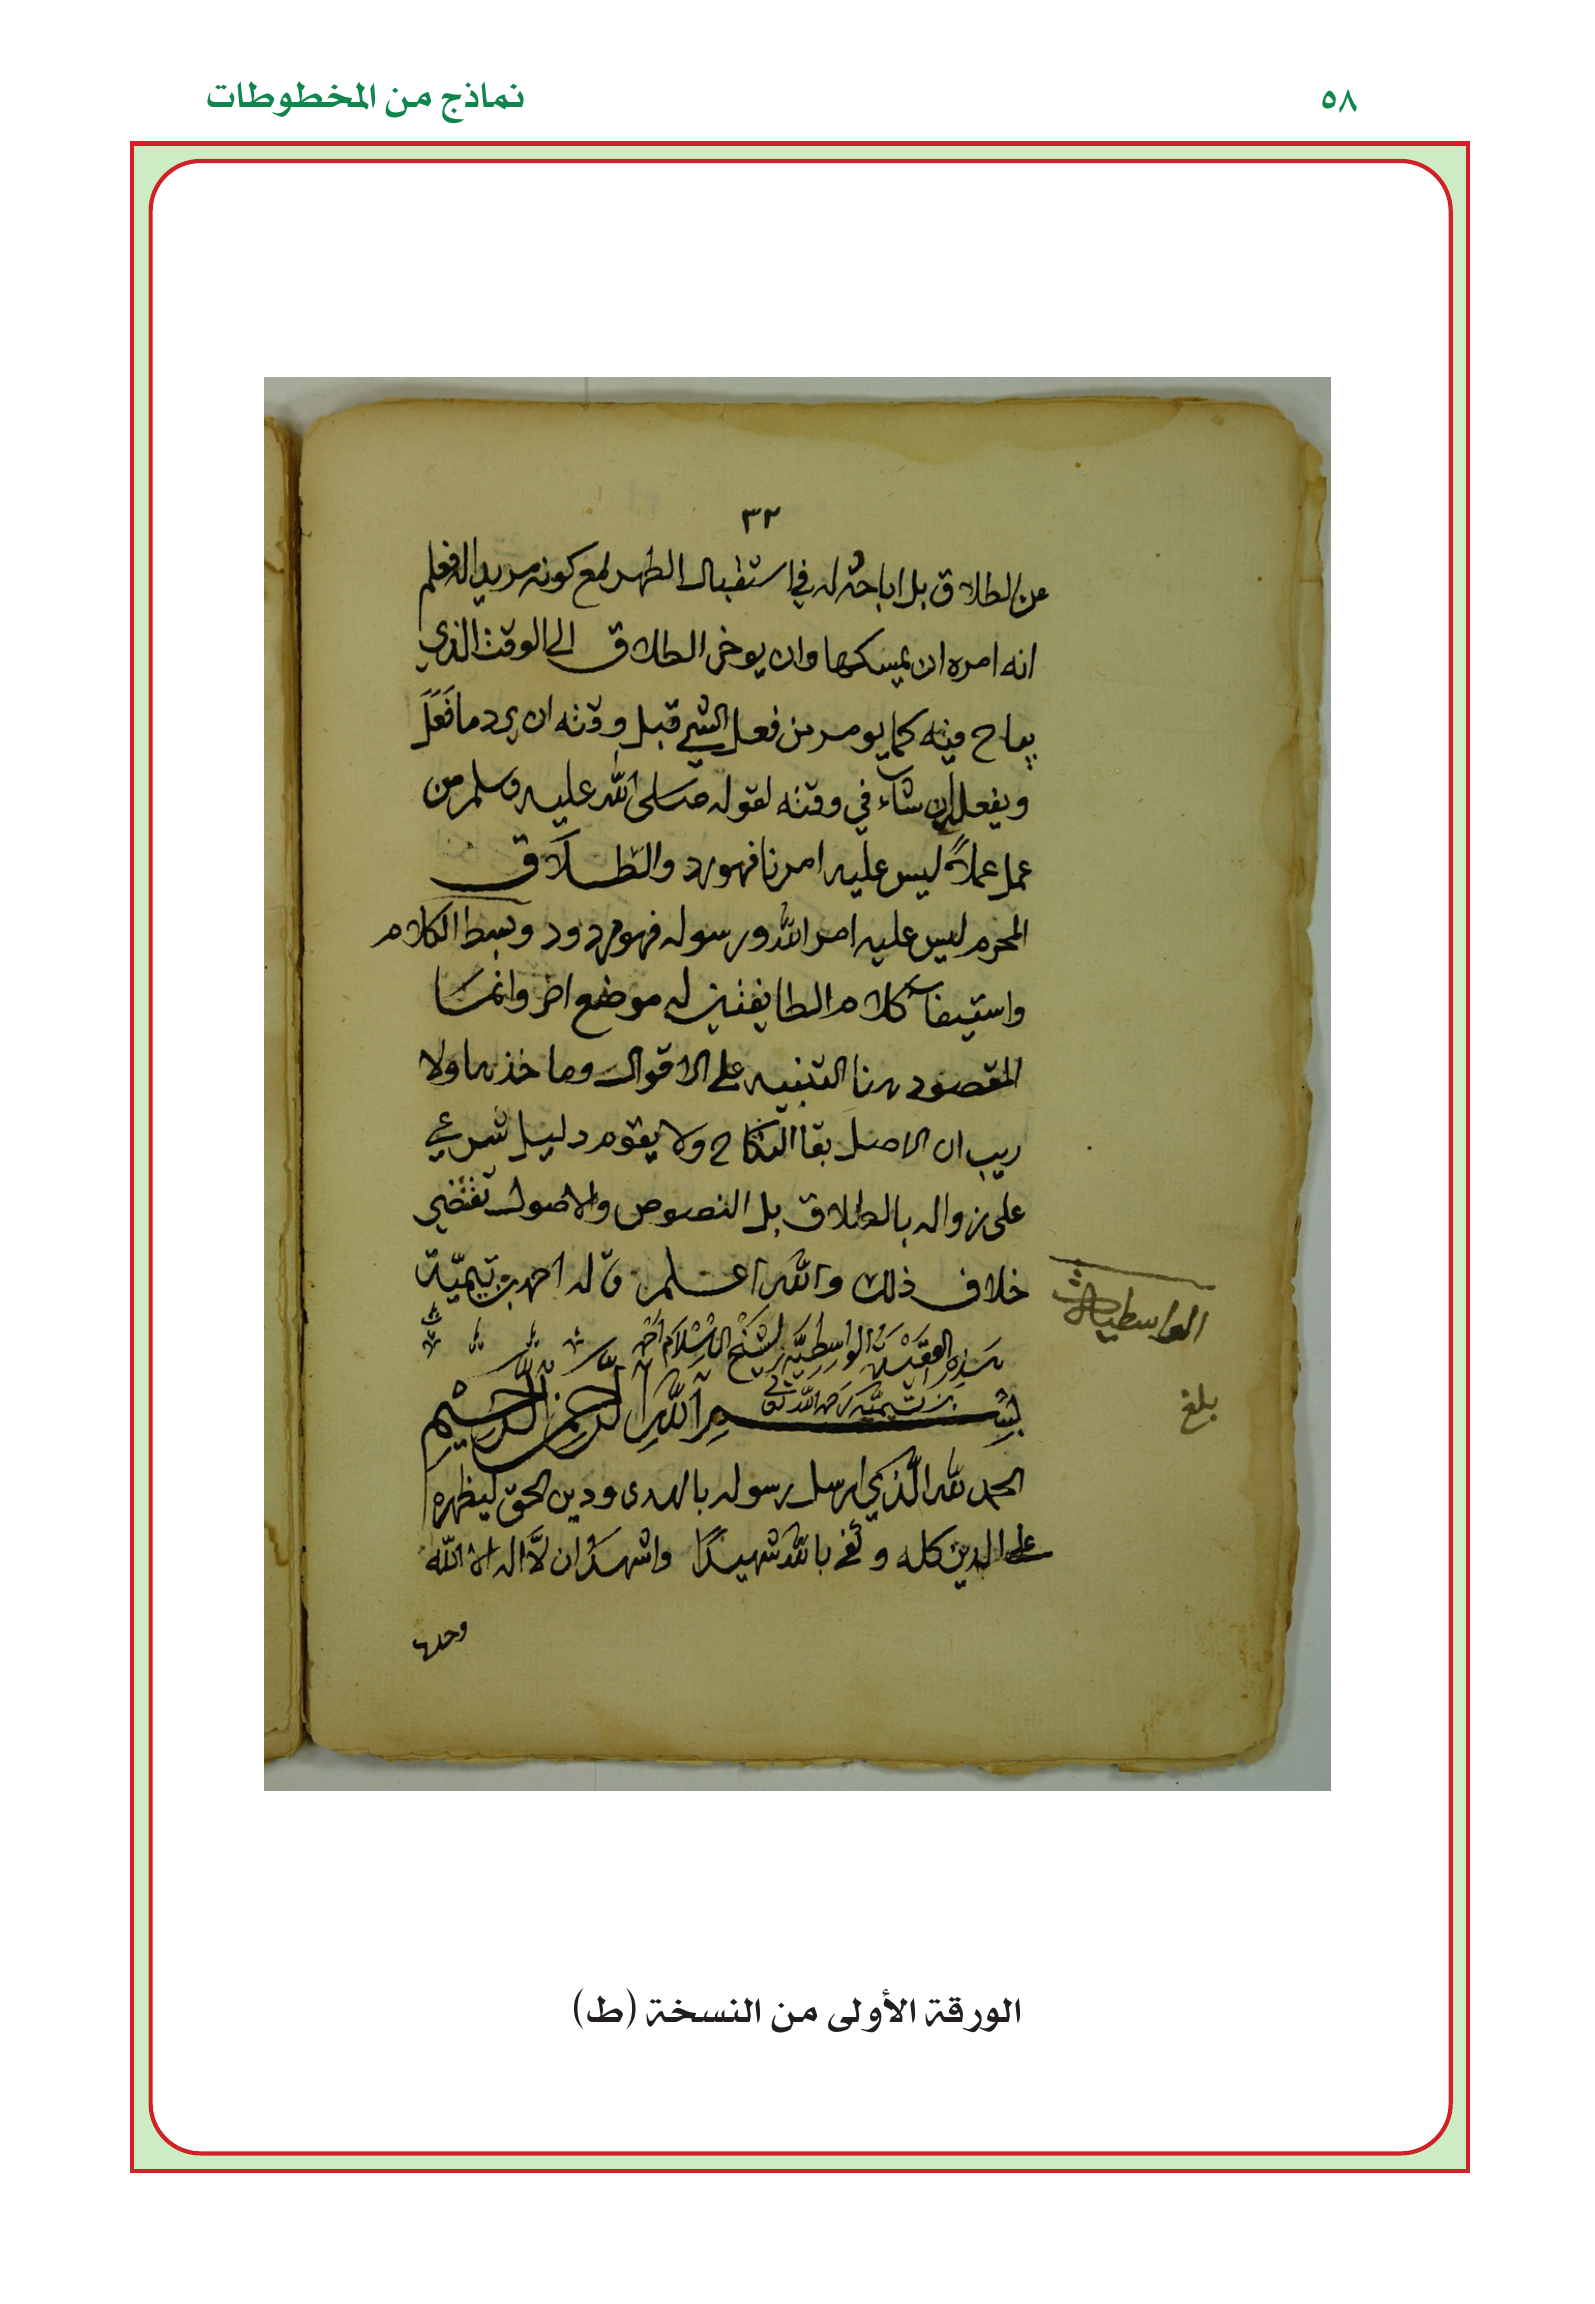 ٥٨
نماذج من المخطوطات
٣٢
عن الطلاق بل اباحته له في استقبال الطهر مع كونه مريدا له فعلم
انه امره ان يمسكها وان يوخر الطلاق الى الوقت الذي
يباح فيه كما يومر من فعل الشي قبل وقته ان يرد ما فعل
ويفعل ان شاء في وقته لقوله صلى الله عليه وسلم من
عمل عملاً ليس عليه امرنا فهو رد والطلاق
المحرم ليس عليه امر الله ورسوله فهو مردود وبسط الكلام
واستيفاء كلام الطايفتين له موضع اخر وانما
المقصود هنا التنبيه على الاقوال وماخذها ولا
ريب ان الاصل بقا النكاح ولا يقوم دليل شرعي
على زواله بالطلاق بل النصوص والاصول تقتضي
خلاف ذلك والله اعلم قاله احمد بن تيمية
الواسطية
هذه العقيدة الواسطية لشيخ الاسلام احمد
بن تيمية رحمه الله تعالى
بلغ
بسم الله الرحمن الرحيم
الحمد لله الذي ارسل رسوله بالهدى ودين الحق ليظهره
على الدين كله وكفى بالله شهيدًا واشهد ان لا اله الا الله
وحده
الورقة الأولى من النسخة (ط)